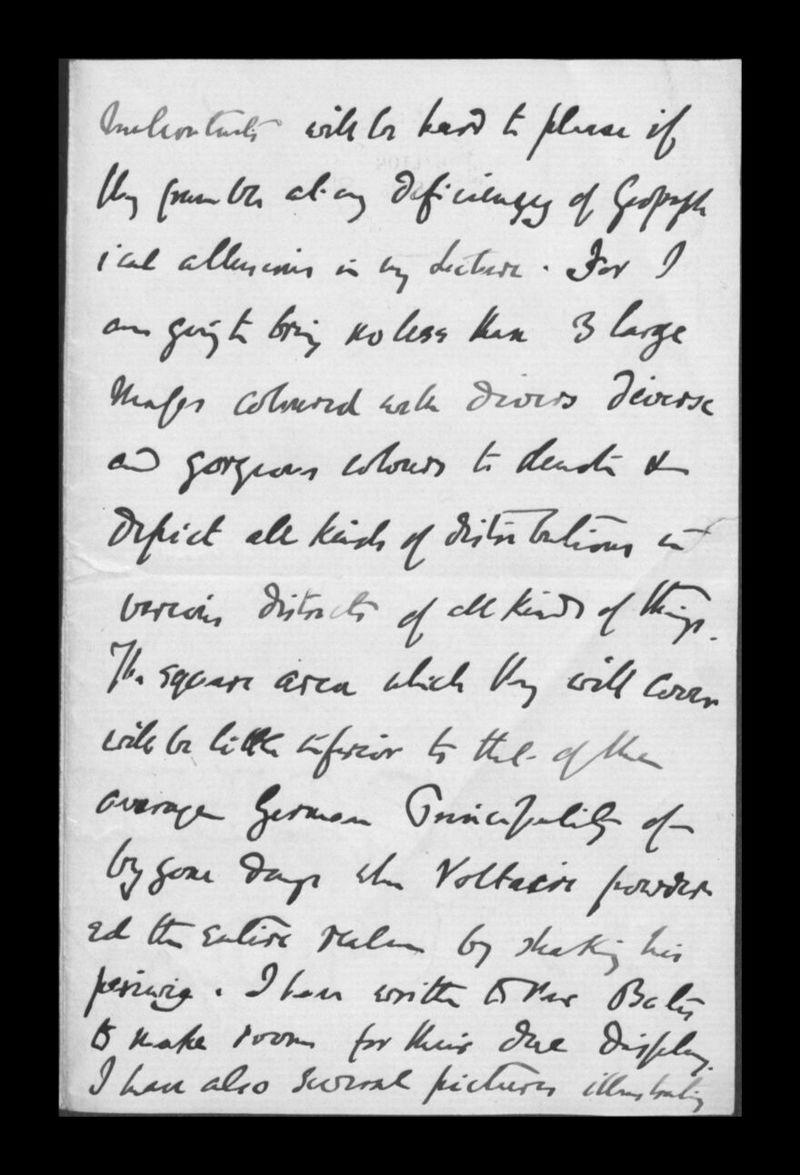 Malcontents will be hard to please if
they grumble at any deficiency of Geograph
ical allusions in my lecture. For I
am going to bring no less than 3 large
Maps coloured with divers diverse
and gorgeous colours to denote &
depict all kinds of distributions in
various districts of all kinds of things.
The square area which they will cover
will be little inferior to that of the
average German Principality of
bygone days when Voltaire powder
ed the entire realm by shaking his
periwig. I have written to Bates
to make room for their due display.
I have also several pictures illustrating